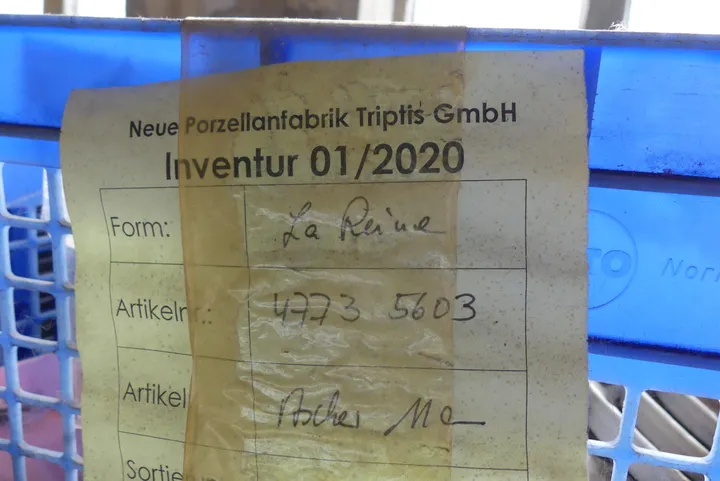 Neue Porzellanfabrik Triptis GmbH
Inventur 01/2020
Form: La Reine
Artikelnr.: 4773 5603
Artikel Ascher
Sortie